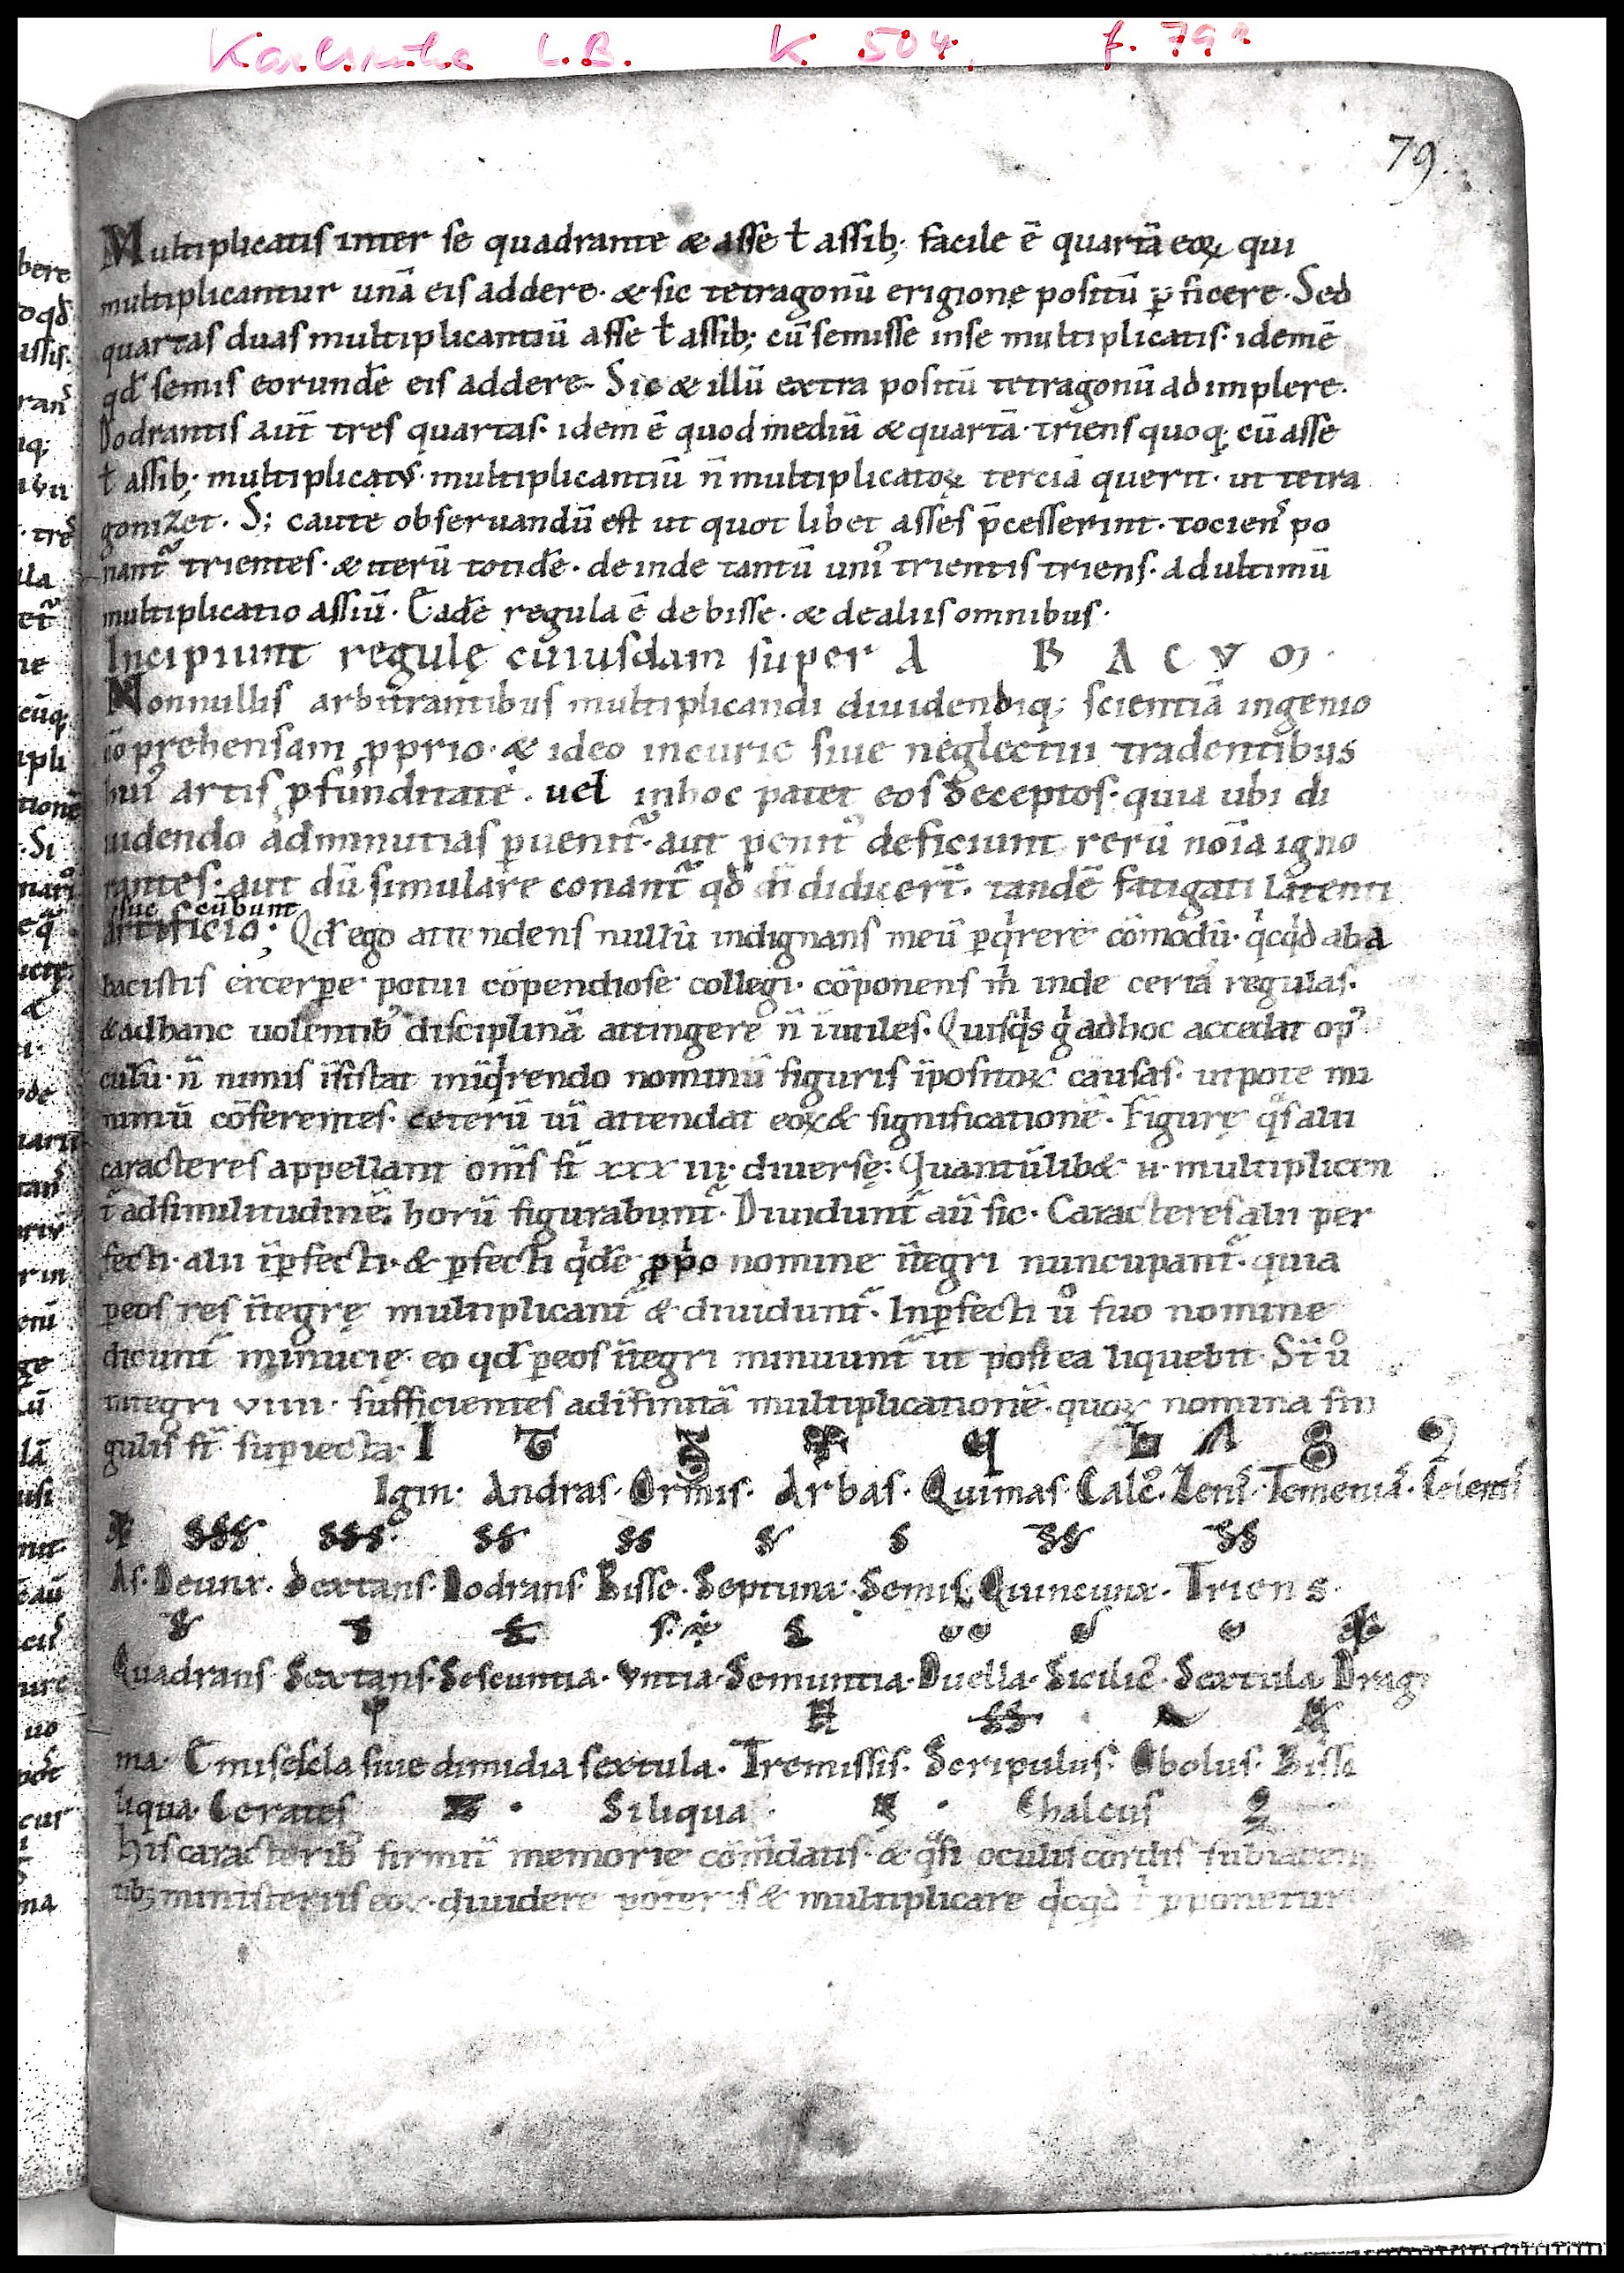 Karlsruhe L.B. K 504. f. 79r
79.
Multiplicatis inter se quadrante & asse ł assib; facile ē quartā eoꝝ qui
multiplicantur unā eis addere· & sic tetragonū erigione positū ꝑficere· Sed
quartas duas multiplicantiū asse ł assib; cū semisse inse multiplicatis· idemē
qd̄ semis eorundē eis addere· Sic & illū extra positū tetragonū adimplere·
Dodrantis aut̄ tres quartas· idem ē quod mediū & quartā· triens quoq; cū asse
ł assib; multiplicatus· multiplicantiū n̄ multiplicatoꝝ terciā querit· ut tetra
gonizet· S; caute obseruandū est ut quot libet asses p̄cesserint· tociens po
nant̄ trientes· & iterū totidē· de inde tantū uni᾽ trientis triens· ad ultimū
multiplicatio assiū· Eadē regula ē de bisse· & dealiis omnibus·
Incipiunt regulę cuiusdam super A B A C V M·
Nonnullis arbitrantibus multiplicandi diuidendiq; scientiā ingenio
cōprehensam ꝓprio· & ideo incurie siue neglectui tradentibus
hui᾽ artis ꝓfunditatē· uel inhoc patet eos deceptos· quia ubi di
uidendo adminutias ꝑuenit̄· aut penit᾽ deficiunt rerū noīa igno
rantes· aut dū simulare conant̄ qd̄ n̄ didicert̄· tandē fatigati latenti
suc cūbunt
artificio; Qd̄ ego attendens nullū indignans meū ꝑqͥrere cōmodū· qͥcqͥd aba
bacistis excerꝑe potui cōpendiose collegi· cōponens m̄ inde certas regulas·
& adhanc uolentib᾽ disciplinā attingere n̄ īutiles· Quisqͥs gͥ adhoc accedat op᾽
culū· n̄ nimis īsistat inqͥrendo nominū figuris īpositoꝝ causas· utpote mi
nimū cōferentes· ceterū uī attendat eoꝝ & significationē· Figurę qͣs alii
caracteres appellant om̄s st̄ xxx iii· diuersę· Quantūlib& ū· multiplicen
t̄ adsimilitudinē horū figurabunt̄· Diuidunt̄ aū sic· Caracteres alii per
fecti· alii īꝑfecti· & ꝑfecti qͥdē ꝓpͥo nomine īntegri nuncupant̄· quia
ꝑeos res īntegrę multiplicant̄ & diuidunt̄· Inꝑfecti uͦ suo nomine
dicunt̄ minucię· eo qd̄ ꝑeos īntegri minuunt̄ ut post ea liquebit· St̄ uͦ
integri viiii· sufficientes adīfinitā multiplicationē· quoꝝ nomina sin
gulis st̄ suꝑiecta·
Igin· Andras· Ormis· Arbas· Quimas· Calc᾽· Zenis· Temenias· Celentis
As· Deunx· Dextans· Dodrans· Bisse· Septunx· Semis· Quincunx· Triens
Quadrans· Sextans· Sescuntia· Vntia· Semuntia· Duella· Sicilic᾽· Sextula· Drag
ma· Emisescla siue dimidia sextula· Tremissis· Scripulus· Obolus· Bissi
liqua· Cerates Siliqua Chalcus
His caracterib᾽ firmit̄ memorie cōm̄datis· & qͣsi oculis cordis subiacen
tib; ministeriis eoꝝ· diuidere poteris & multiplicare qͥcqͥd ꝓponetur